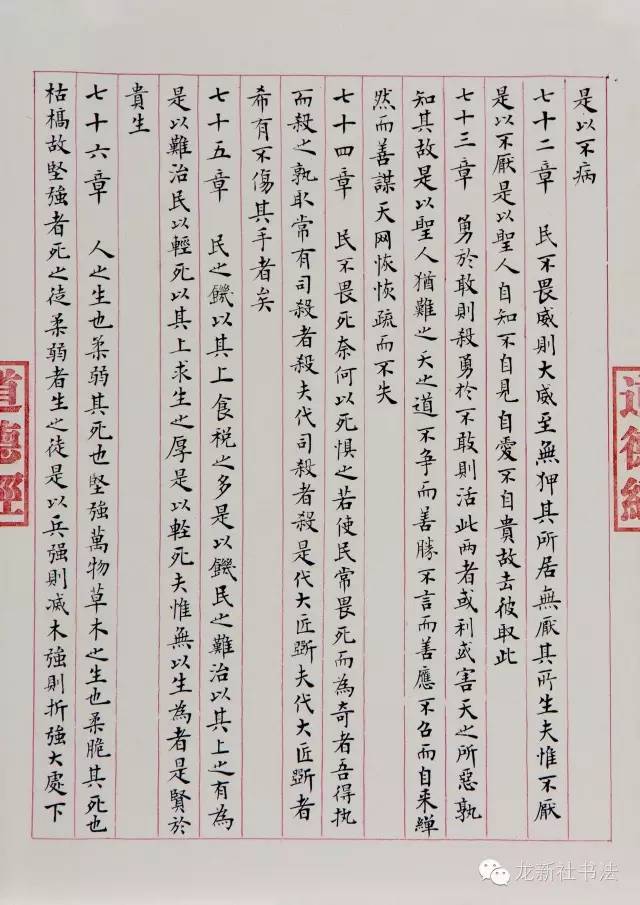 是以不病
七十二章　民不畏威則大威至無狎其所居無厭其所生夫惟不厭
是以不厭是以聖人自知不自見自愛不自貴故去彼取此
七十三章　勇於敢則殺勇於不敢則活此两者或利或害天之所惡孰
知其故是以聖人猶難之天之道不争而善勝不言而善應不召而自来繟
然而善謀天网恢恢疏而不失
七十四章　民不畏死奈何以死惧之若使民常畏死而為奇者吾得执
而殺之孰敢常有司殺者殺夫代司殺者殺是代大匠斲夫代大匠斲者
希有不傷其手者矣
七十五章　民之饑以其上食税之多是以饑民之難治以其上之有為
是以難治民以輕死以其上求生之厚是以輕死夫惟無以生為者是賢於
貴生
七十六章　人之生也柔弱其死也堅強萬物草木之生也柔脆其死也
枯槁故堅強者死之徒柔弱者生之徒是以兵强則滅木強則折強大處下
道德經
道德經
龙新社书法